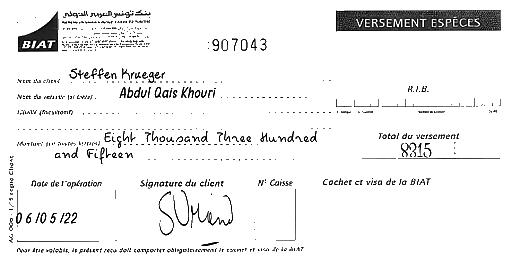 بنك تونس العربي الدولي
BIAT
VERSEMENT ESPÈCES
907043
Nom du client Steffen Krueger
Nom du remettant (si tiers) Abdul Qais Khouri
R.I.B.
Libellé (facultatif)
Montant (en toutes lettres) Eight Thousand Three Hundred
and Fifteen
Total du versement
8315
Date de l'opération
Signature du client
N° Caisse
Cachet et visa de la BIAT
06/05/22
Pour être valable, le présent reçu doit comporter obligatoirement le cachet et visa de la BIAT